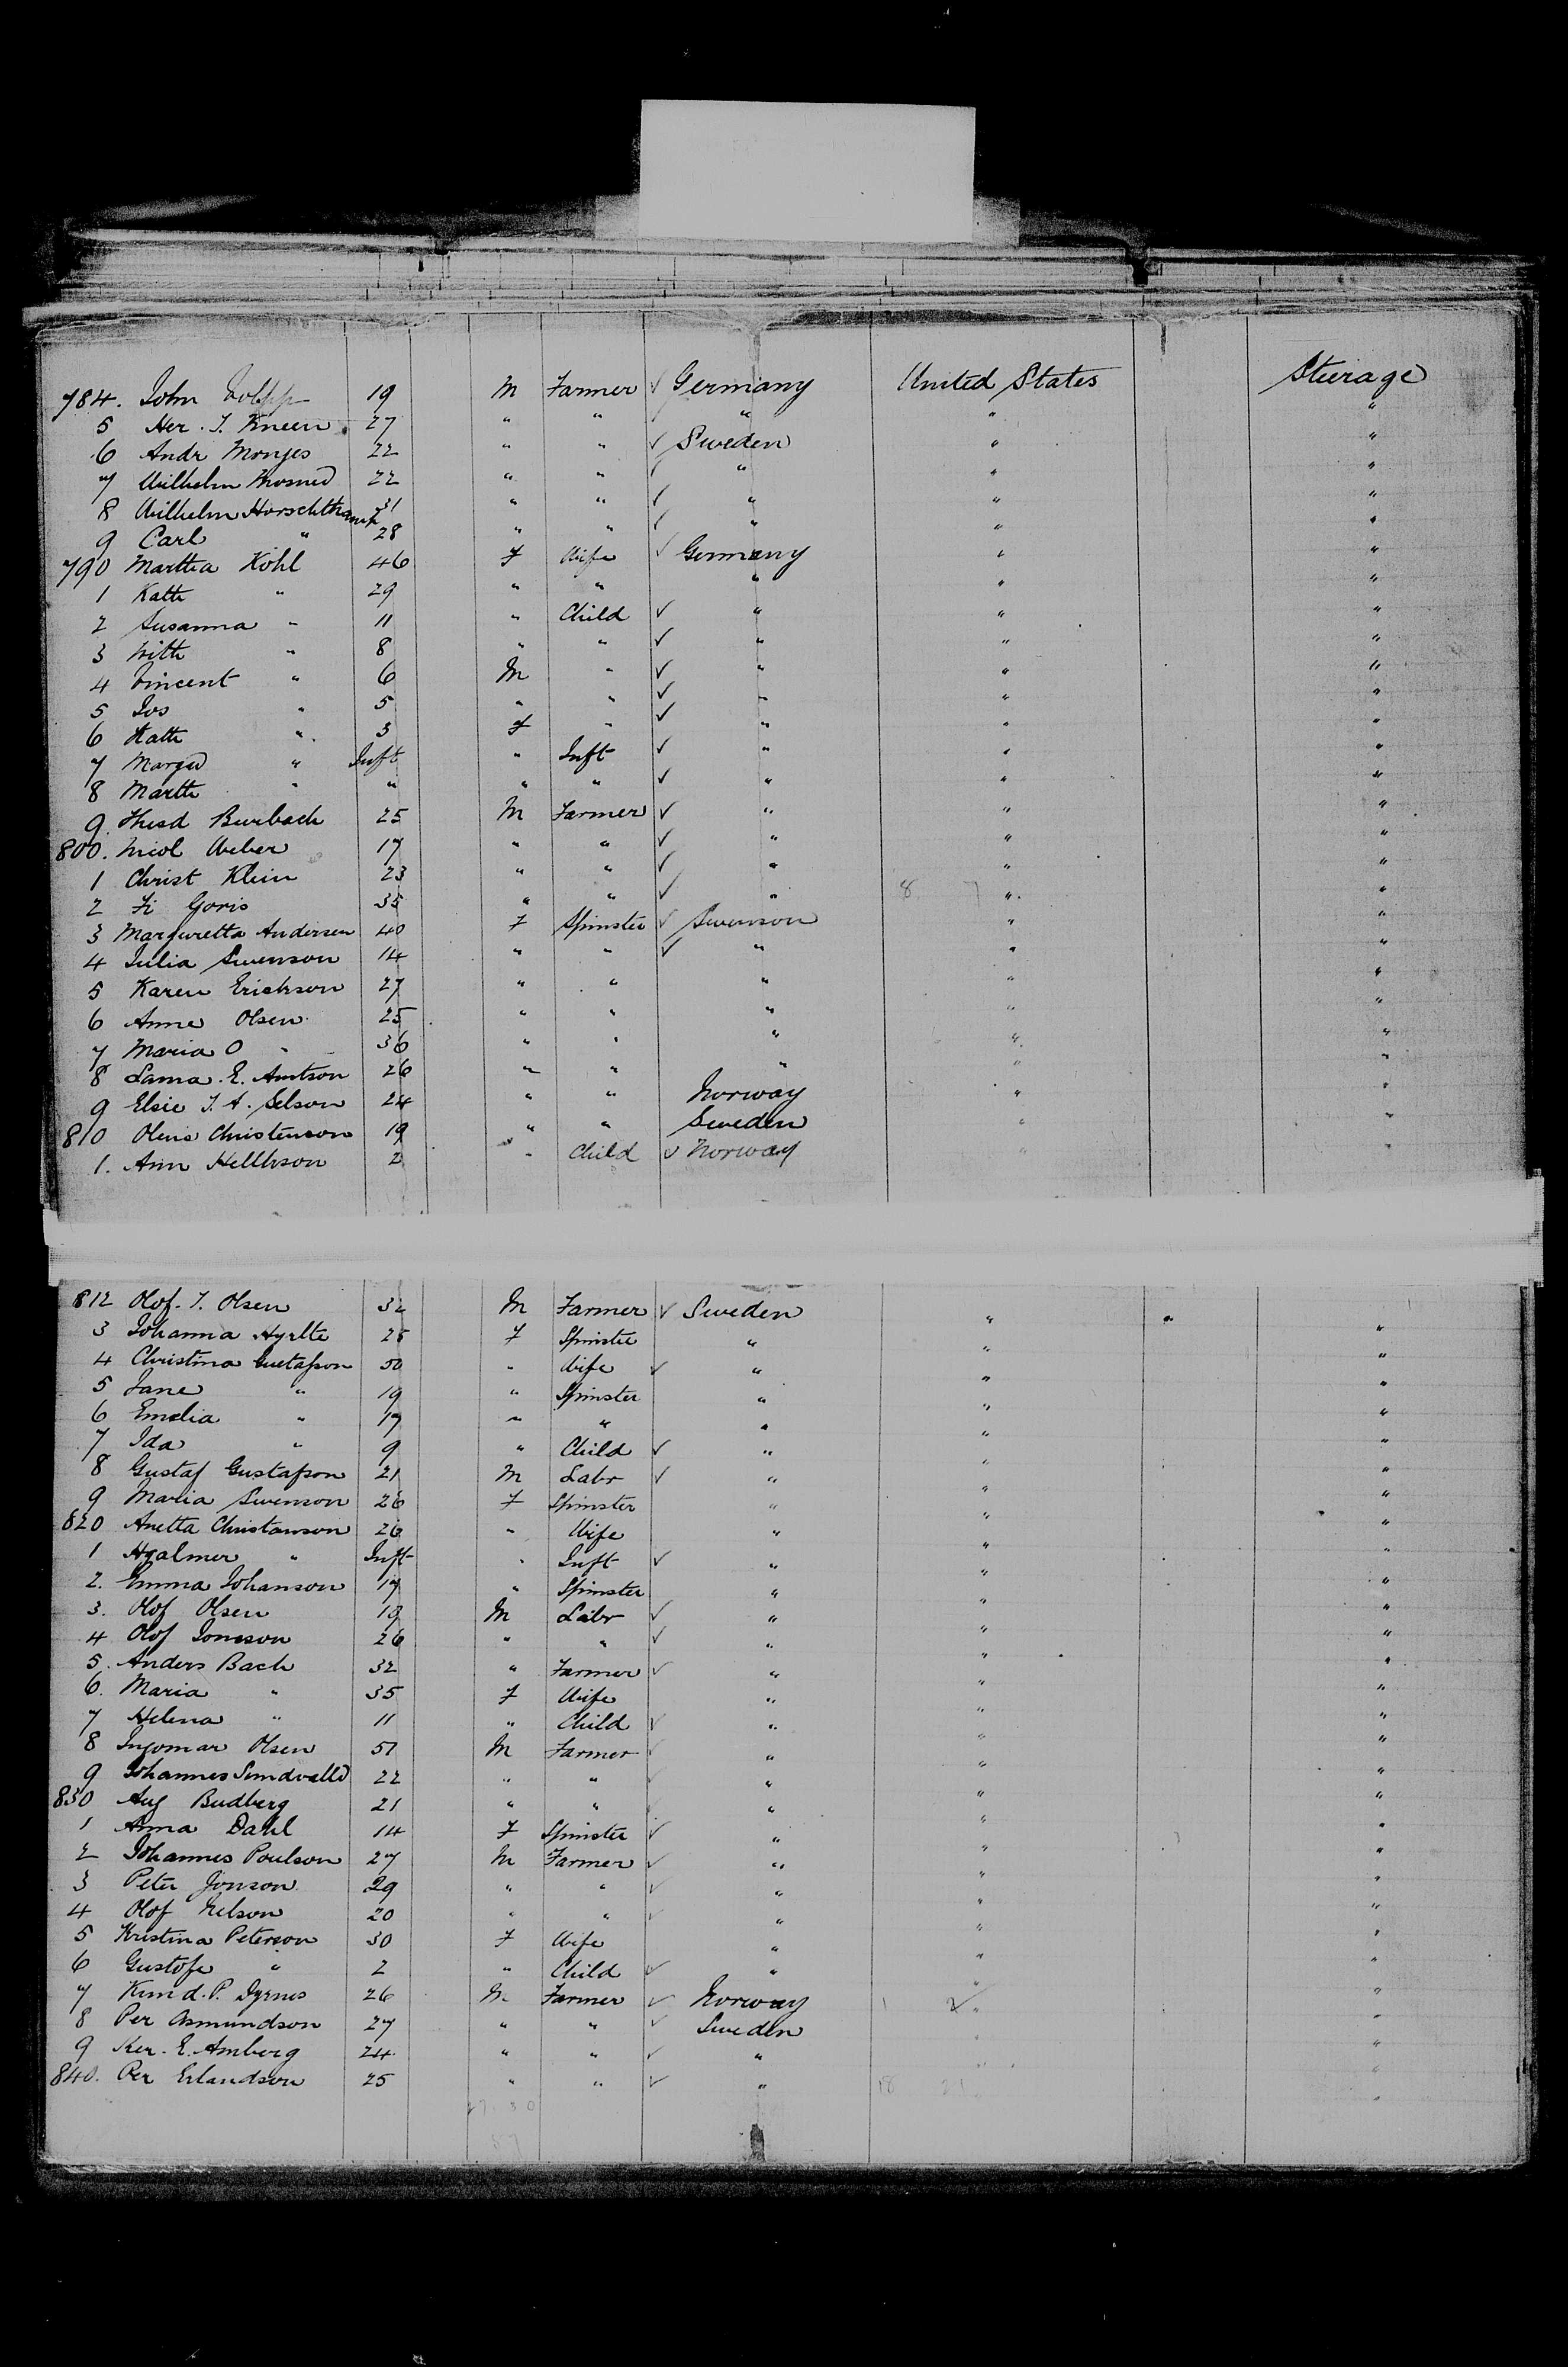 784. John 19 M Farmer ✓ Germany United States Steerage
5 Her. J. Kneen 27 " " ✓ " " "
6 Andr Monjes 22 " " ✓ Sweden " "
7 Wilhelm 22 " " ✓ " " "
8 Wilhelm Horschthamp 31 " " ✓ " " "
9 Carl " 28 " " ✓ " " "
790 Martha Kohl 46 F Wife ✓ Germany " "
1 Kath " 29 " " " " "
2 Susanna " 11 " Child ✓ " " "
3 " 8 " " ✓ " " "
4 Vincent " 6 M " ✓ " " "
5 Jos " 5 " " ✓ " " "
6 Kath " 3 F " ✓ " " "
7 Margd " Inft " Inft ✓ " " "
8 Marth " " " " ✓ " " "
9. Burbach 25 M Farmer ✓ " " "
800. Nicol Weber 17 " " ✓ " " "
1 Christ Klein 23 " " ✓ " " "
2 Fi Goris 35 " " ✓ " 8 7 " "
3 Marguretta Andersen 40 F Spinster ✓ Swenson " "
4 Julia Swenson 14 " " ✓ " " "
5 Karen Erickson 27 " " " " "
6 Anne Olsen 25 " " " " "
7 Maria O " 36 " " " " "
8 Lama. E. Amtson 26 " " " " "
9 Elsie J. A. Selson 24 " " Norway " "
810 Olens Christenson 19 " " Sweden " "
1. Ann Hellhson 2 " Child ✓ Norway " "
812 Olof. J. Olsen 32 M Farmer ✓ Sweden " " "
3 Johanna 25 F Spinster " " "
4 Christina Gustafson 50 " Wife ✓ " " "
5 Jane " 19 " Spinster " " "
6 Emelia " 17 " " " " "
7 Ida " 9 " Child ✓ " " "
8 Gustaf Gustafson 21 M Labr ✓ " " "
9 Maria Swenson 26 F Spinster " " "
820 Anetta Christanson 26 " Wife " " "
1 Hjalmer " Inft " Inft ✓ " " "
2. Emma Johanson 17 " Spinster " " "
3. Olof Olsen 18 M Labr ✓ " " "
4 Olof Joneson 26 " " ✓ " " "
5. Anders Bach 32 " Farmer ✓ " " "
6. Maria " 35 F Wife " " "
7 Helena " 11 " Child ✓ " " "
8 Ingomar Olsen 51 M Farmer ✓ " " "
9 Johannes Sundvalld 22 " " ✓ " " "
830 Aug Budberg 21 " " ✓ " " "
1 Anna Dahl 14 F Spinster ✓ " " "
2 Johannes Poulson 27 M Farmer ✓ " " "
3 Peter Jonson 29 " " ✓ " " "
4 Olof Nelson 20 " " ✓ " " "
5 Kristina Peterson 30 F Wife " " "
6 Gustofe " 2 " Child ✓ " " "
7 Knud. P. 26 M Farmer ✓ Norway 1 2 " "
8 Per Asmundson 27 " " ✓ Sweden " "
9 Ker. E. Amberg 24 " " ✓ " " "
840. Per Erlandson 25 " " ✓ " 18 21 " "
27. 30
57